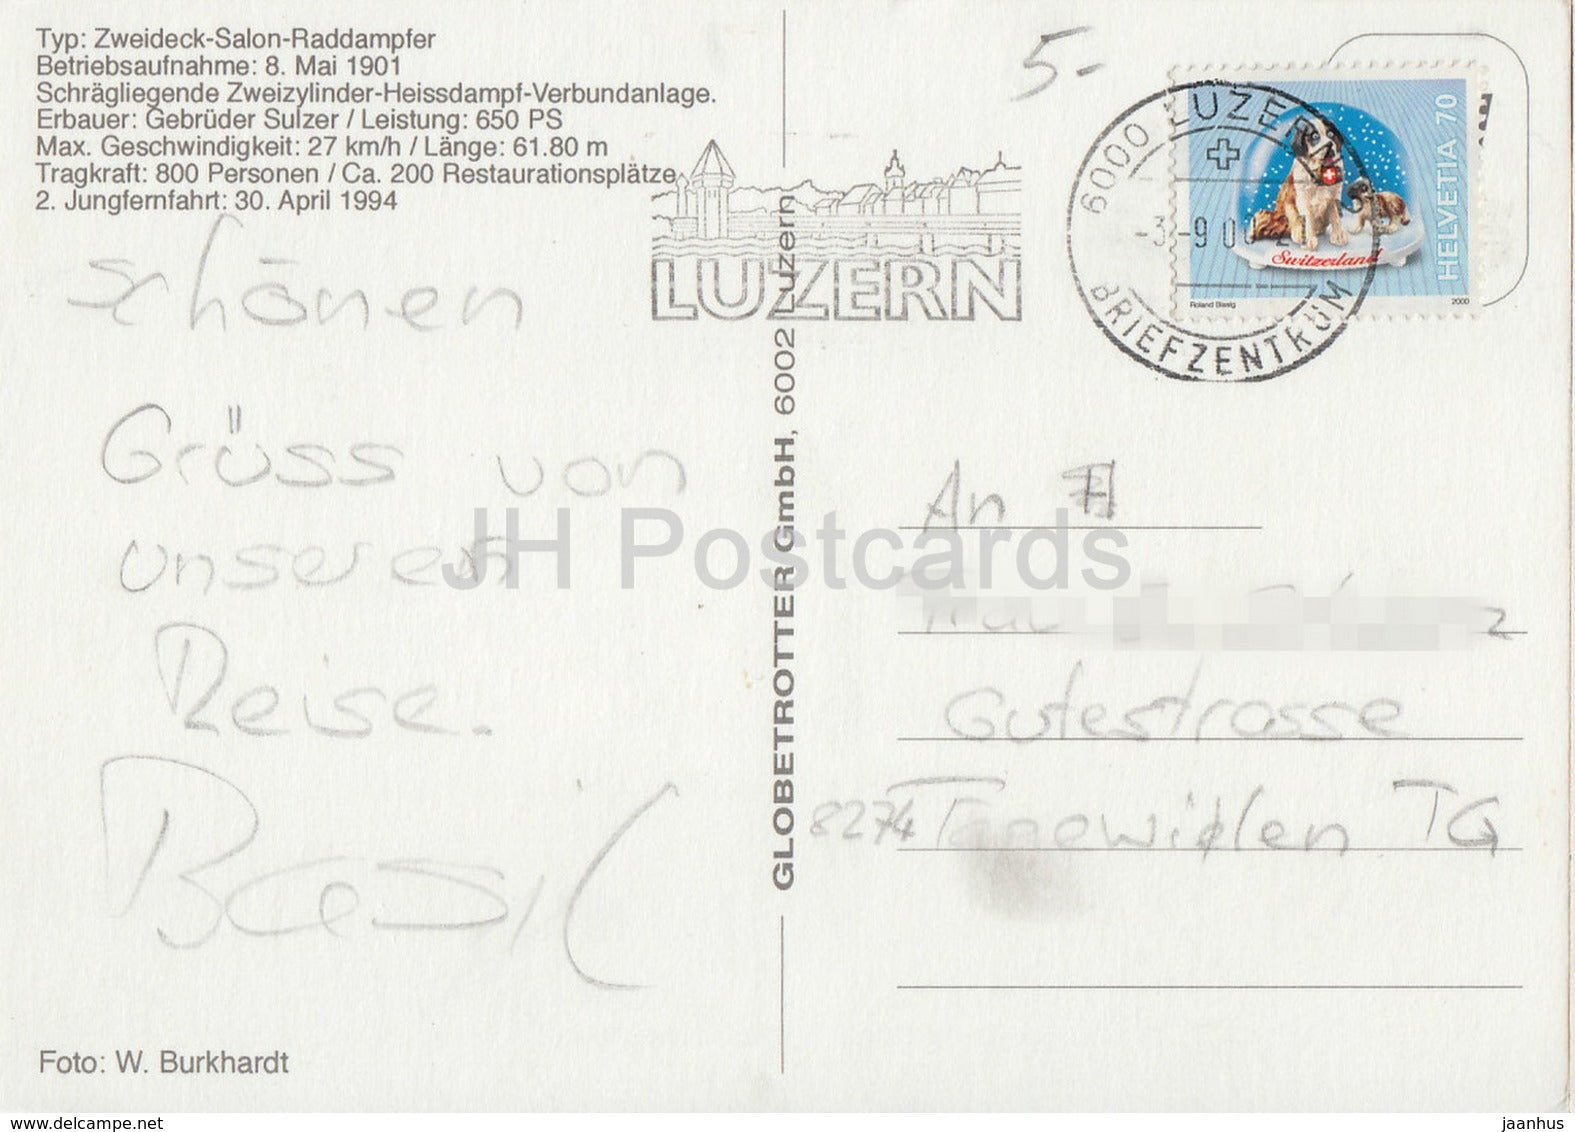 Typ: Zweideck-Salon-Raddampfer
Betriebsaufnahme: 8. Mai 1901
Schrägliegende Zweizylinder-Heissdampf-Verbundanlage.
Erbauer: Gebrüder Sulzer / Leistung: 650 PS
Max. Geschwindigkeit: 27 km/h / Länge: 61.80 m
Tragkraft: 800 Personen / Ca. 200 Restaurationsplätze
2. Jungfernfahrt: 30. April 1994
schönen
Grüss von
unseren
Reise.
Basil
Foto: W. Burkhardt
GLOBETROTTER GmbH, 6002 Luzern
LUZERN
5.-
6000 LUZERN
-3.-9.00
BRIEFZENTRUM
Switzerland
HELVETIA 70
Roland Bissig
2000
An
Frau
Gutestrasse
8274 TG
JH Postcards
www.delcampe.net
jaanhus